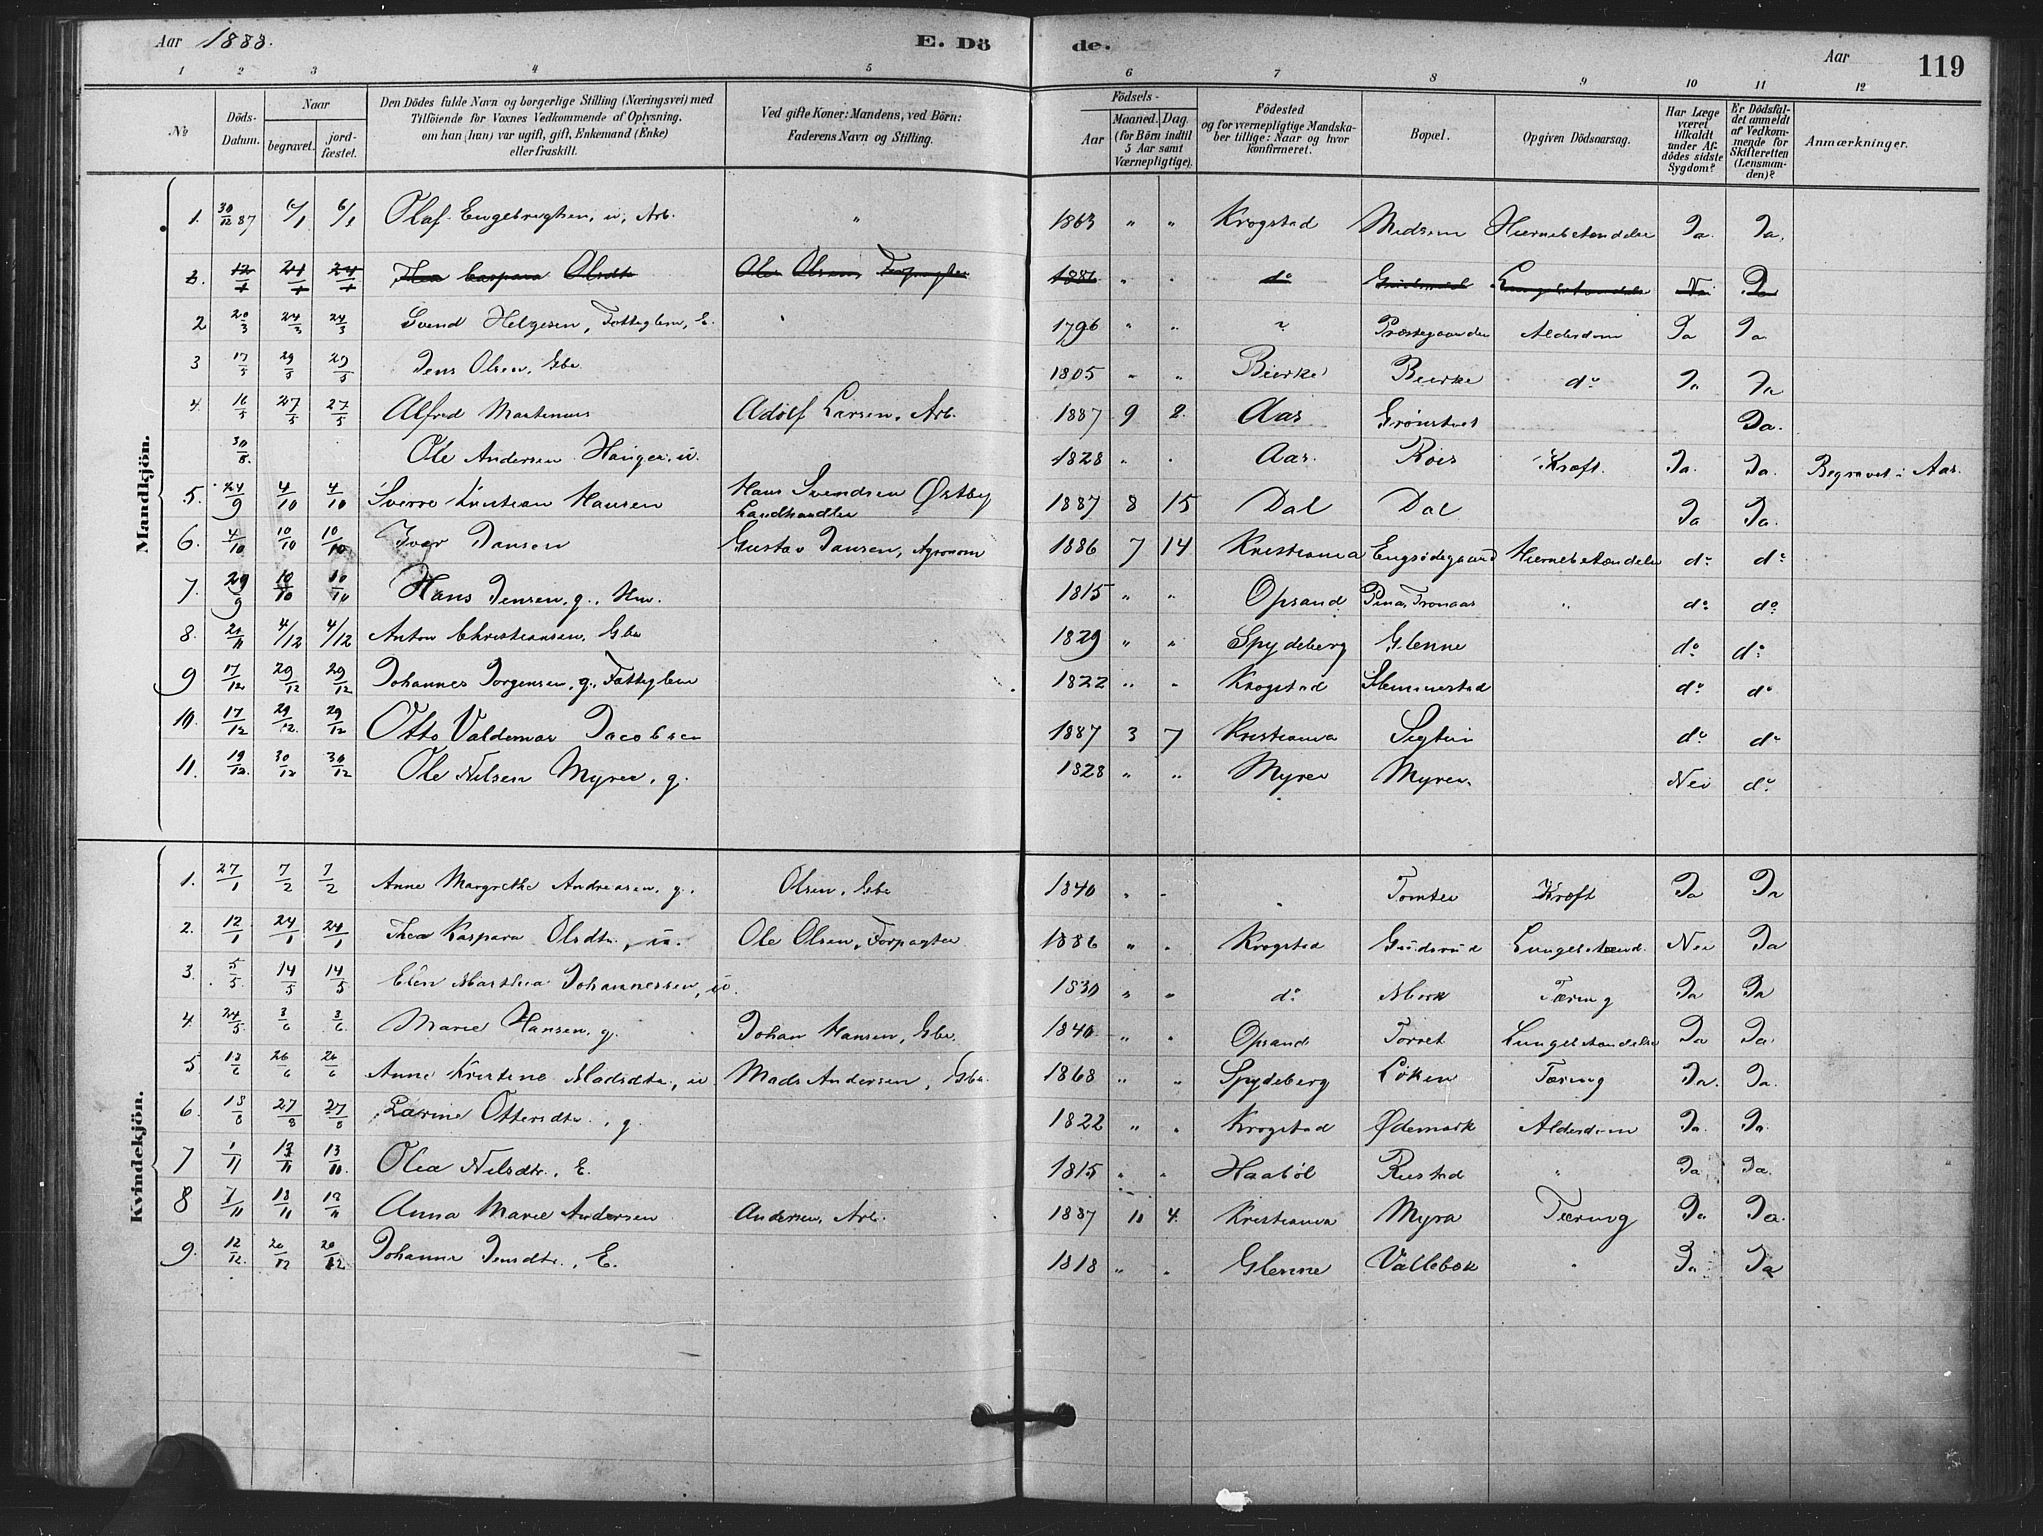 Aar 1888. E. Dö de. Aar 119
1 2 3 4 5 6 7 8 9 10 11 12
№ Döds-Datum. Naar begravet. jordfæstet. Den Dödes fulde Navn og borgerlige Stilling (Næringsvei) med Tilföiende for Voxnes Vedkommende af Oplysning. om han (hun) var ugift, gift, Enkemand (Enke) eller fraskilt. Ved gifte Koner: Mandens, ved Börn: Faderens Navn og Stilling. Födsels- Aar Maaned. Dag. (for Börn indtil 5 Aar samt Værnepligtige). Födested og for værnepligtige Mandskaber tillige: Naar og hvor konfirmeret. Bopæl. Opgiven Dödsaarsag. Har Læge været tilkaldt under Afdödes sidste Sygdom? Er Dödsfaldet anmeldt af Vedkommende for Skifteretten (Lensmanden)? Anmærkninger.
Mandkjön.
1. 30/12 87 6/1 6/1 Olaf Engebregtsen, u, Arb. " 1863 " " Krogstad Hiernebetændelse Ja. Ja.
2. 12/1 24/1 24/1 Thea Caspara Olsdtr Ole Olsen Forpagter 1886 " " do Gudsrud Lungebetændelse Nei Ja
2 20/3 24/3 24/3 Svend Helgesen, Fattiglem, E. 1796 " " " Præstegaarden Alderdom Ja Ja
3 17/5 29/5 29/5 Jens Olsen, Gbr 1805 " " Bierke Bierke do Ja Ja
4. 16/5 27/5 27/5 Alfred Martenius Adolf Larsen, Arb. 1887 9 2. Aas Ja.
30/8. Ole Andersen Hauger, u. 1828 " " Aas. Kræft. Ja. Ja. Begravet i Aas.
5. 24/9 4/10 4/10 Sverre Kristian Hansen Hans Svendsen Østby Landhandler 1887 8 15 Dal Dal Ja Ja.
6. 4/10 10/10 10/10 Ivar Jansen Gustav Jansen, Agronom 1886 7 14 Kristiania Hiernebetændelse do do
7. 29/9 10/10 10/10 Hans Jensen, g., Hm. 1815 " " Opsand " do do
8. 4/12 4/12 Anton Christiansen, Gbr 1829 " " Spydeberg Glenne do do
9 17/12 29/12 29/12 Johannes Jørgensen, g., Fattiglem 1822 " " Krogstad do do
10. 17/12 29/12 29/12 Otto Valdemar Jacobsen 1887 3 7 Kristiania do do
11. 19/12 30/12 30/12 Ole Nilsen Myrer, g. 1828 " " Myrer Myrer. Nei do
Kvindekjön.
1. 27/1 7/2 7/2 Anne Margrethe Andreasen, g. Olsen, Gbr 1840 " " " Tomter Kræft Ja Ja
2. 12/1 24/1 24/1 Thea Kaspara Olsdtr., u. Ole Olsen, Forpagter 1886 " " Krogstad Gudsrud Lungebetænd. Nei Ja
3. 5/5 14/5 14/5 Elen Marthea Johannessen, u. 1830 " " do Mork Tæring Ja Ja
4. 24/5 3/6 3/6 Marie Hansen, g. Johan Hansen, Gbr. 1840 " " Opsand Torvet Lungebetændelse Ja Ja.
5 26/6 26/6 Anne Kristine Madsdtr., u Mads Andersen, Gbr. 1868 " " Spydeberg Løken Tæring Ja. Ja.
6. 18/8 27/8 27/8 Larine Ottersdtr., g. 1822 " " Krogstad Ødemark Alderdom Ja. Ja.
7 1/11 13/11 13/11. Olea Nilsdtr., E. 1815 " " Haabøl Rustad " Ja Ja.
8 7/11 18/11 18/11 Anna Marie Andersen Andersen, Arb. 1887 11 4. Kristiania Myra Tæring Ja Ja.
9. 12/12. 20/12 20/12 Johanne Jensdtr., E. 1818 " " Glenne Vallebæk " Ja Ja